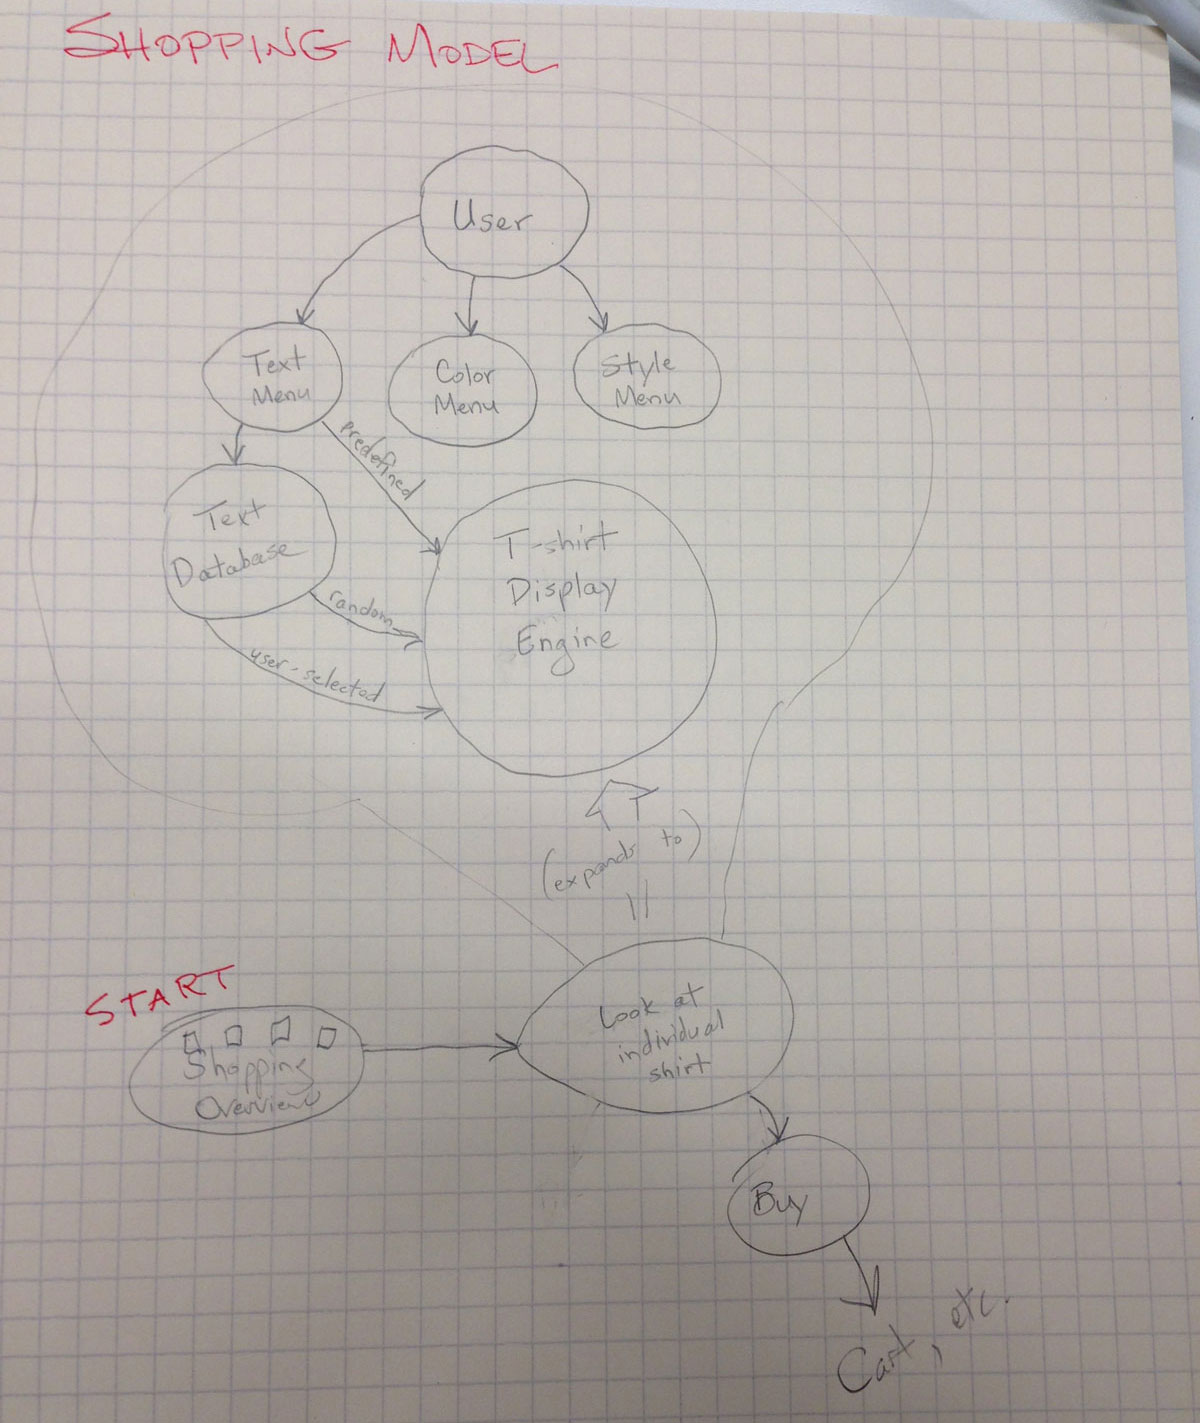 SHOPPING MODEL
User
Text
Menu
Color
Menu
Style
Menu
predefined
Text
Database
random
user-selected
T-shirt
Display
Engine
(expands to)
START
Shopping
Overview
Look at
individual
shirt
Buy
Cart, etc.